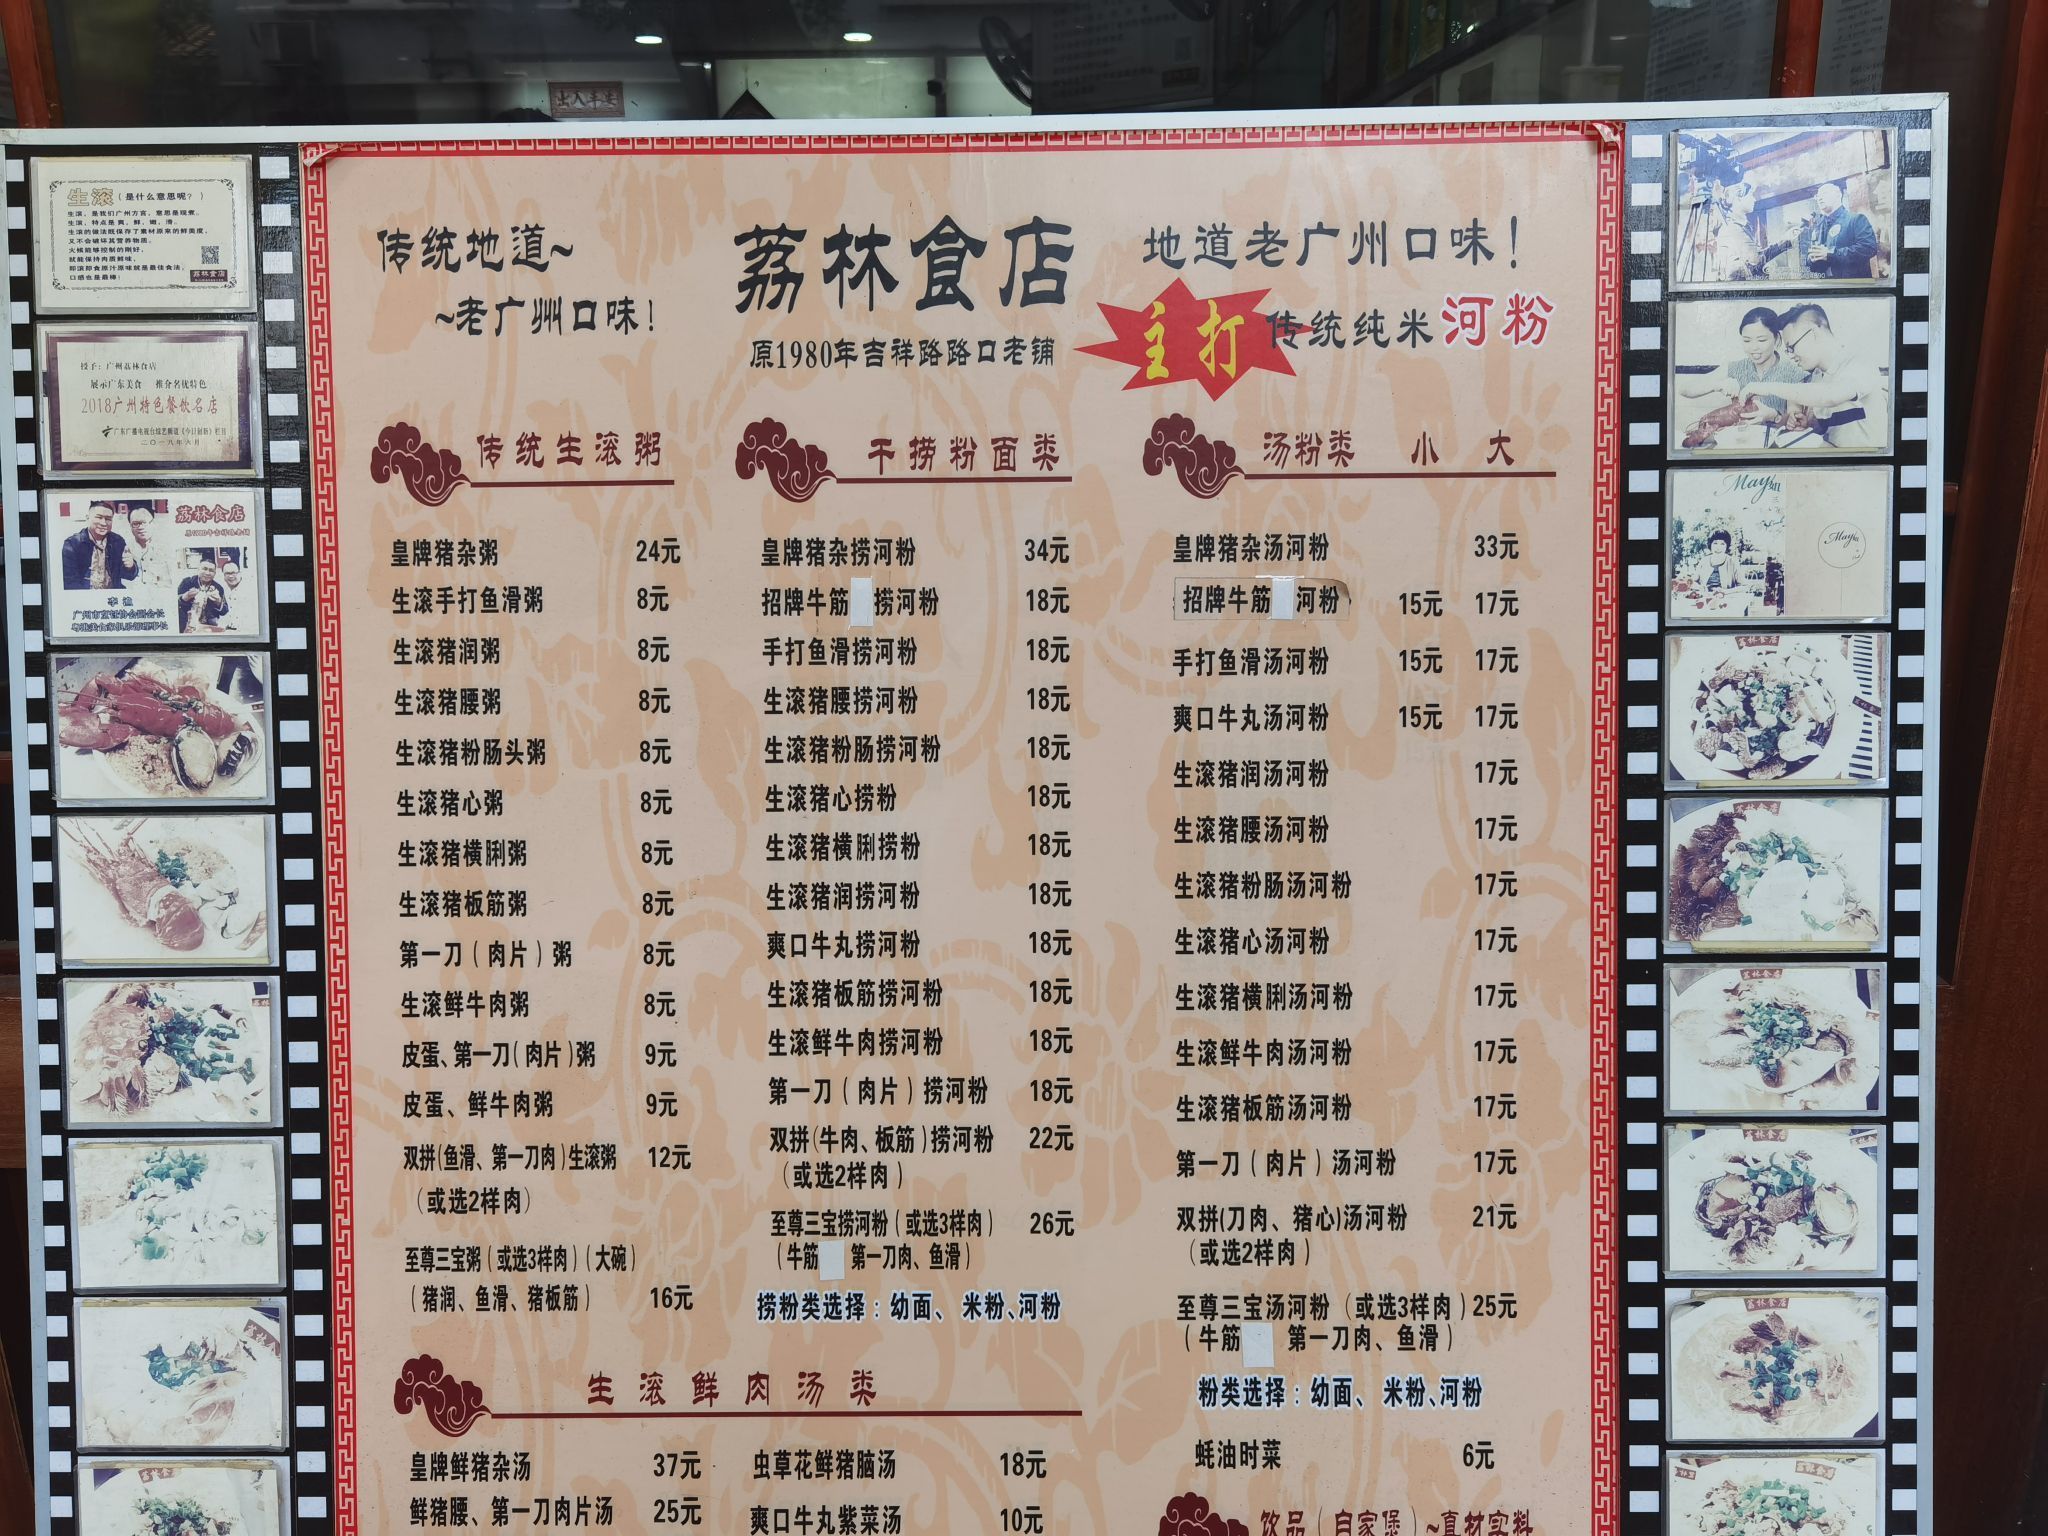 出入平安
生滚（是什么意思呢？）
生滚，是我们广州方言，意思是现煮。
生滚，特点是爽、鲜、嫩、滑。
生滚的做法既保存了素材原来的鲜美度，
又不会破坏其营养物质。
火候能够控制的刚好，
就能保持肉质鲜味，
即滚即食原汁原味就是最佳食法，
口感也是最棒！
荔林食店
授予：广州荔林食店
展示广东美食 推介名优特色
2018广州特色餐饮名店
广东广播电视台综艺频道《今日创新》栏目
二〇一八年六月
荔林食店
原1980年吉祥路老铺
李 渔
广州市烹饪协会副会长
传统地道~
~老广州口味！
荔林食店
原1980年吉祥路路口老铺
地道老广州口味！
主打 传统纯米河粉
传统生滚粥
皇牌猪杂粥 24元
生滚手打鱼滑粥 8元
生滚猪润粥 8元
生滚猪腰粥 8元
生滚猪粉肠头粥 8元
生滚猪心粥 8元
生滚猪横脷粥 8元
生滚猪板筋粥 8元
第一刀（肉片）粥 8元
生滚鲜牛肉粥 8元
皮蛋、第一刀（肉片）粥 9元
皮蛋、鲜牛肉粥 9元
双拼（鱼滑、第一刀肉）生滚粥 12元
（或选2样肉）
至尊三宝粥（或选3样肉）（大碗）
（猪润、鱼滑、猪板筋） 16元
干捞粉面类
皇牌猪杂捞河粉 34元
招牌牛筋 捞河粉 18元
手打鱼滑捞河粉 18元
生滚猪腰捞河粉 18元
生滚猪粉肠捞河粉 18元
生滚猪心捞粉 18元
生滚猪横脷捞粉 18元
生滚猪润捞河粉 18元
爽口牛丸捞河粉 18元
生滚猪板筋捞河粉 18元
生滚鲜牛肉捞河粉 18元
第一刀（肉片）捞河粉 18元
双拼（牛肉、板筋）捞河粉 22元
（或选2样肉）
至尊三宝捞河粉（或选3样肉） 26元
（牛筋 第一刀肉、鱼滑）
捞粉类选择：幼面、米粉、河粉
汤粉类 小 大
皇牌猪杂汤河粉 33元
招牌牛筋 河粉 15元 17元
手打鱼滑汤河粉 15元 17元
爽口牛丸汤河粉 15元 17元
生滚猪润汤河粉 17元
生滚猪腰汤河粉 17元
生滚猪粉肠汤河粉 17元
生滚猪心汤河粉 17元
生滚猪横脷汤河粉 17元
生滚鲜牛肉汤河粉 17元
生滚猪板筋汤河粉 17元
第一刀（肉片）汤河粉 17元
双拼(刀肉、猪心)汤河粉 21元
（或选2样肉）
至尊三宝汤河粉（或选3样肉） 25元
（牛筋 第一刀肉、鱼滑）
粉类选择：幼面、米粉、河粉
蚝油时菜 6元
生滚鲜肉汤类
皇牌鲜猪杂汤 37元
鲜猪腰、第一刀肉片汤 25元
虫草花鲜猪脑汤 18元
爽口牛丸紫菜汤 10元
饮品（自家煲）~真材实料
荔林食店
荔林食店
荔林食店
荔林食店
荔林食店